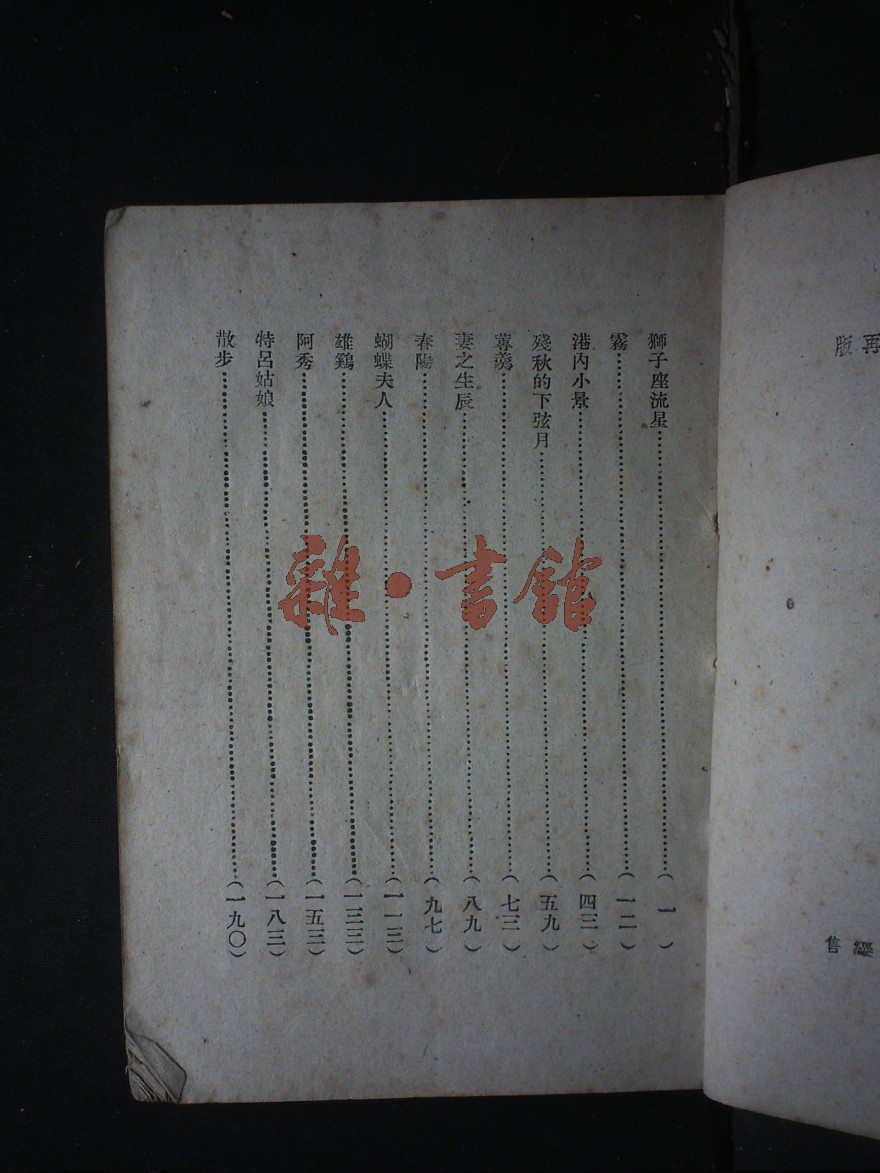 獅子座流星……(一)
霧……(一二)
港內小景……(四三)
殘秋的下弦月……(五九)
蓴羹……(七三)
妻之生辰……(八九)
春陽……(九七)
蝴蝶夫人……(一一三)
雄鷄……(一三三)
阿秀……(一五三)
特呂姑娘……(一八三)
散步……(一九〇)
再版
經售
雜·書館